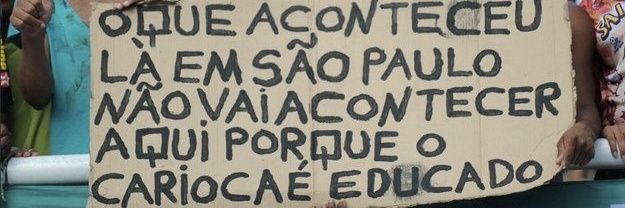 O QUE ACONTECEU
LÀ EM SÃO PAULO
NÃO VAI ACONTECER
AQUI PORQUE O
CARIOCA É EDUCADO